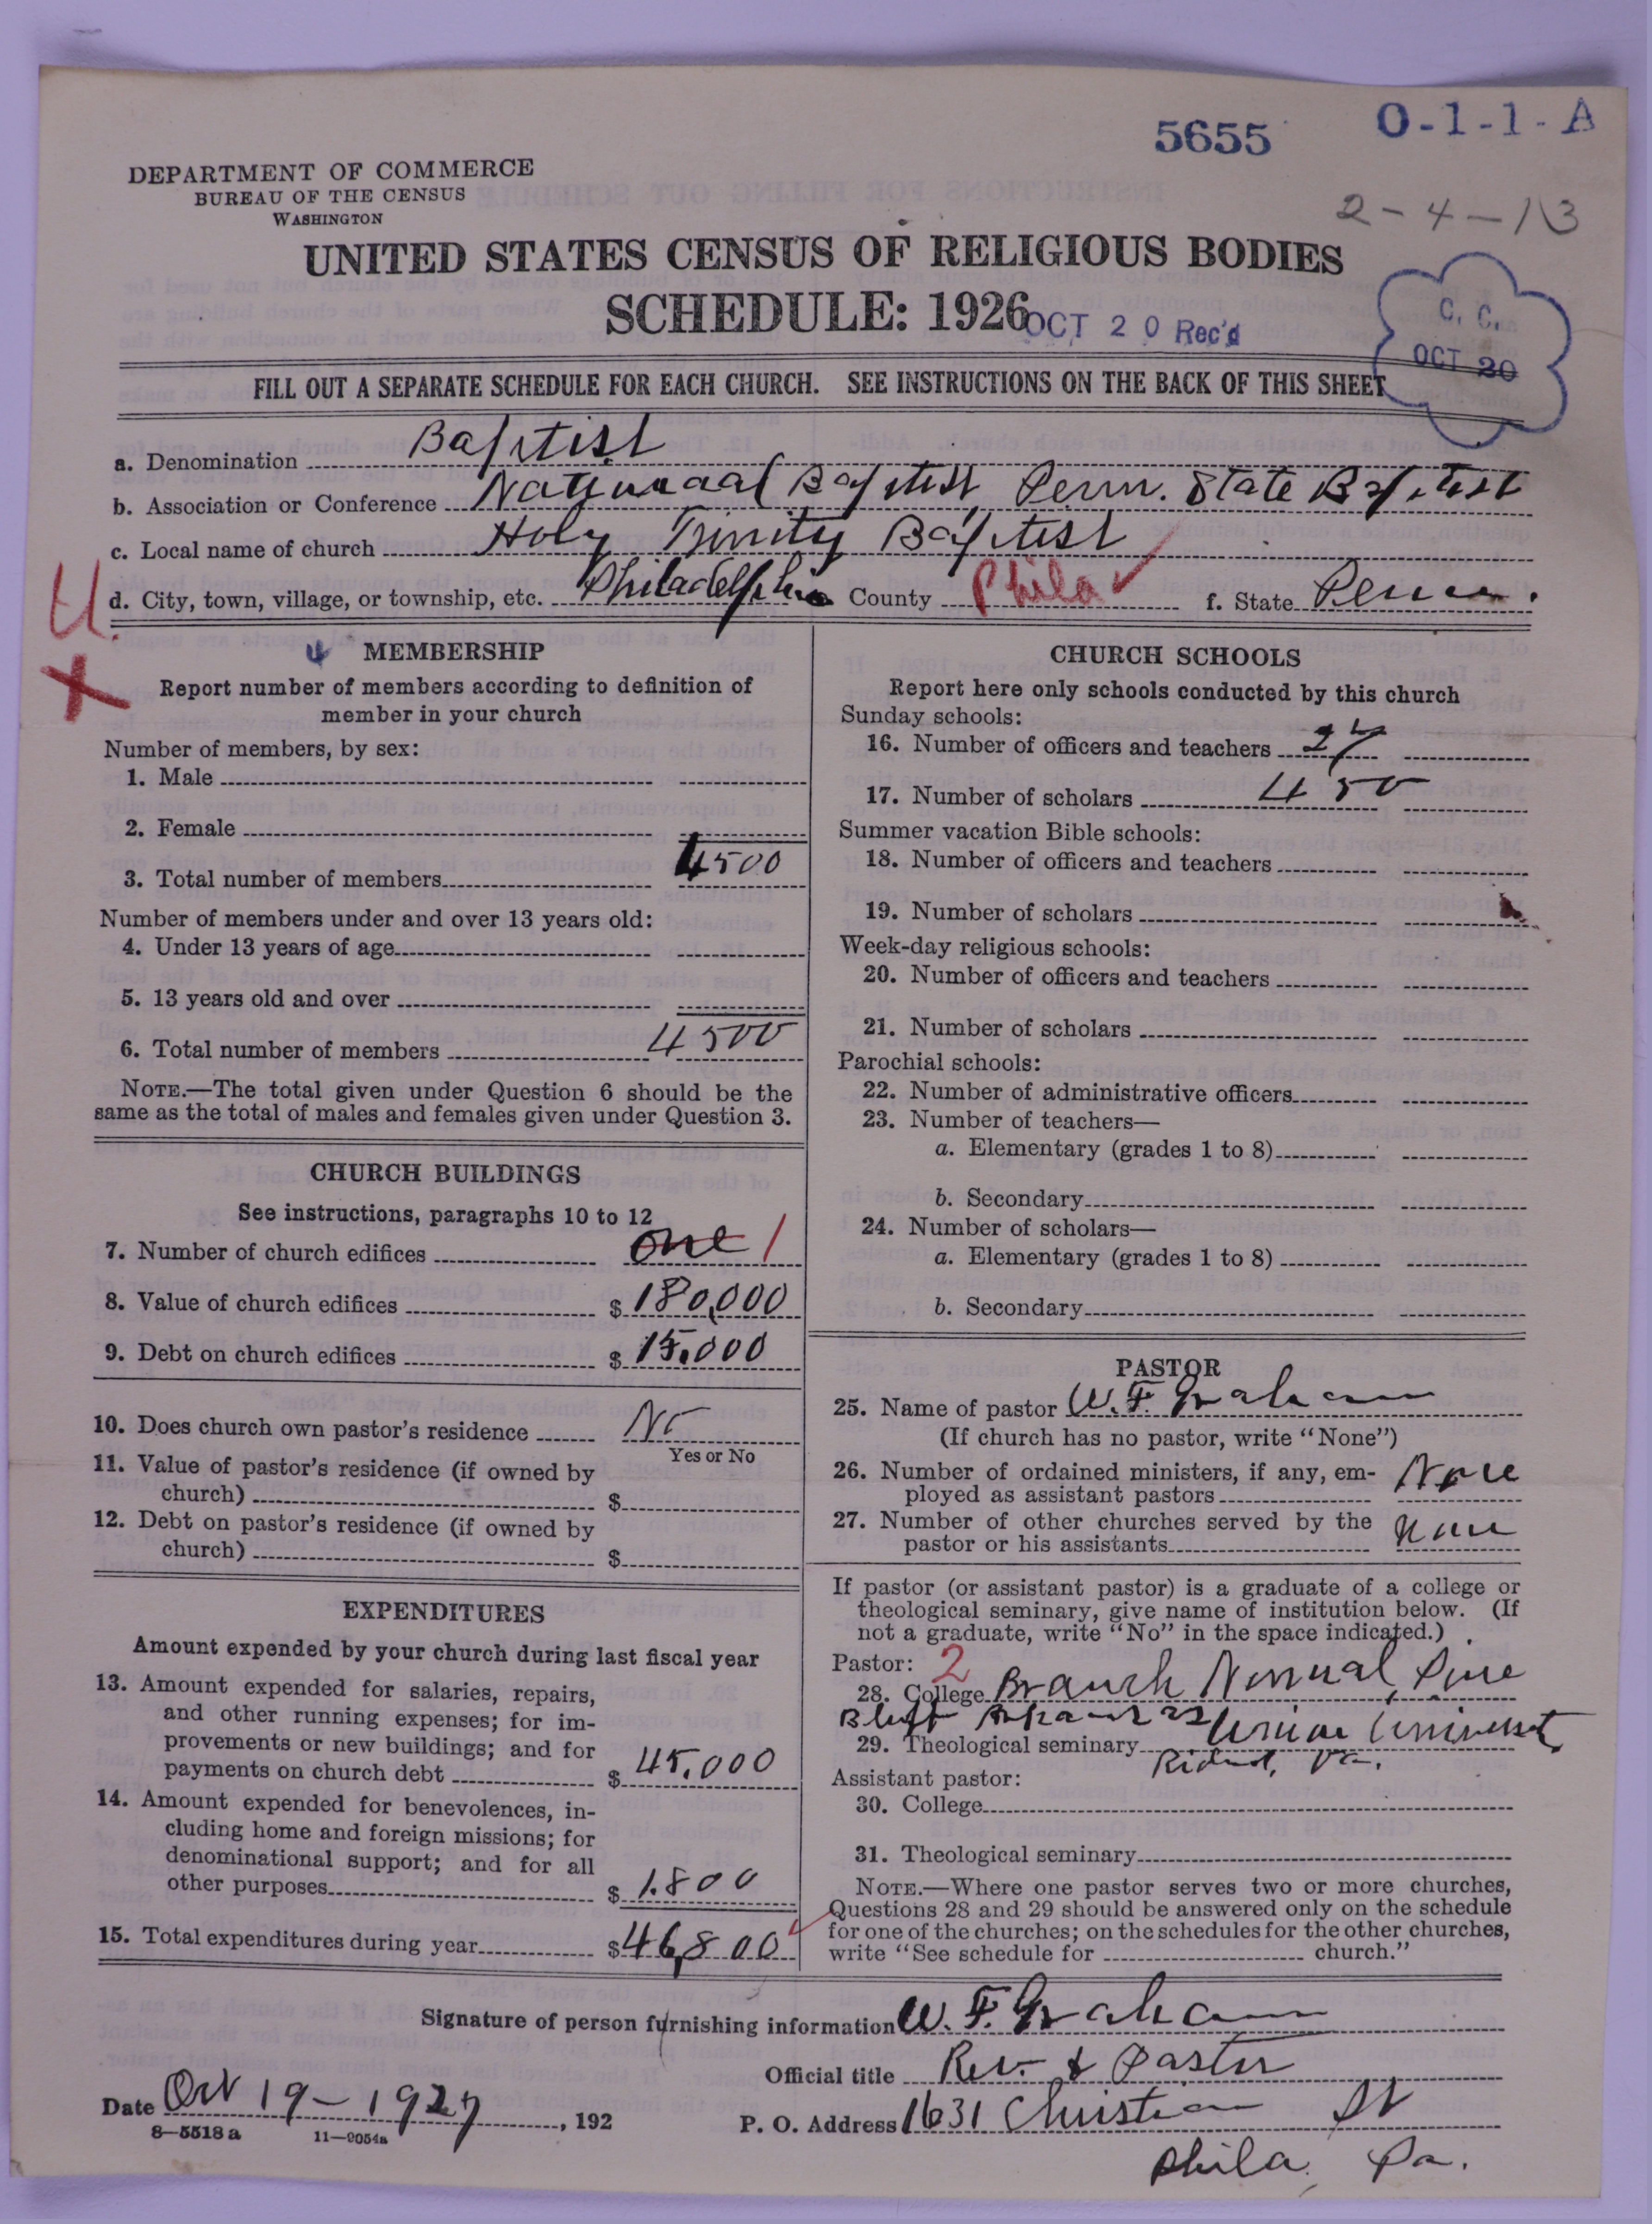 5655
O-1-1-A
DEPARTMENT OF COMMERCE
BUREAU OF THE CENSUS
WASHINGTON
2-4-13
UNITED STATES CENSUS OF RELIGIOUS BODIES
SCHEDULE: 1926
OCT 20 Rec'd
C. C.
OCT 20
FILL OUT A SEPARATE SCHEDULE FOR EACH CHURCH. SEE INSTRUCTIONS ON THE BACK OF THIS SHEET
a. Denomination Baptist
b. Association or Conference National Baptist, Penn. State Baptist
c. Local name of church Holy Trinity Baptist
d. City, town, village, or township, etc. Philadelphia County Phila f. State Penn.
U.
X
MEMBERSHIP
Report number of members according to definition of
member in your church
Number of members, by sex:
1. Male
2. Female
3. Total number of members 4500
Number of members under and over 13 years old:
4. Under 13 years of age
5. 13 years old and over
6. Total number of members 4500
NOTE.—The total given under Question 6 should be the
same as the total of males and females given under Question 3.
CHURCH BUILDINGS
See instructions, paragraphs 10 to 12
7. Number of church edifices one 1
8. Value of church edifices $180,000
9. Debt on church edifices $15,000
10. Does church own pastor's residence No
Yes or No
11. Value of pastor's residence (if owned by
church) $
12. Debt on pastor's residence (if owned by
church) $
EXPENDITURES
Amount expended by your church during last fiscal year
13. Amount expended for salaries, repairs,
and other running expenses; for im-
provements or new buildings; and for
payments on church debt $45,000
14. Amount expended for benevolences, in-
cluding home and foreign missions; for
denominational support; and for all
other purposes $1,800
15. Total expenditures during year $46,800
CHURCH SCHOOLS
Report here only schools conducted by this church
Sunday schools:
16. Number of officers and teachers
17. Number of scholars 450
Summer vacation Bible schools:
18. Number of officers and teachers
19. Number of scholars
Week-day religious schools:
20. Number of officers and teachers
21. Number of scholars
Parochial schools:
22. Number of administrative officers
23. Number of teachers—
a. Elementary (grades 1 to 8)
b. Secondary
24. Number of scholars—
a. Elementary (grades 1 to 8)
b. Secondary
PASTOR
25. Name of pastor W. F. Graham
(If church has no pastor, write "None")
26. Number of ordained ministers, if any, em-
ployed as assistant pastors None
27. Number of other churches served by the
pastor or his assistants None
If pastor (or assistant pastor) is a graduate of a college or
theological seminary, give name of institution below. (If
not a graduate, write "No" in the space indicated.)
Pastor: 2
28. College Branch Normal, Pine
Bluff Arkansas
29. Theological seminary Union University
Richmd, Va.
Assistant pastor:
30. College
31. Theological seminary
NOTE.—Where one pastor serves two or more churches,
Questions 28 and 29 should be answered only on the schedule
for one of the churches; on the schedules for the other churches,
write "See schedule for church."
Signature of person furnishing information W. F. Graham
Official title Rev. & Pastor
Date Oct 19-1927, 192
P. O. Address 1631 Christian St
Phila, Pa.
8—5518 a 11—9054a